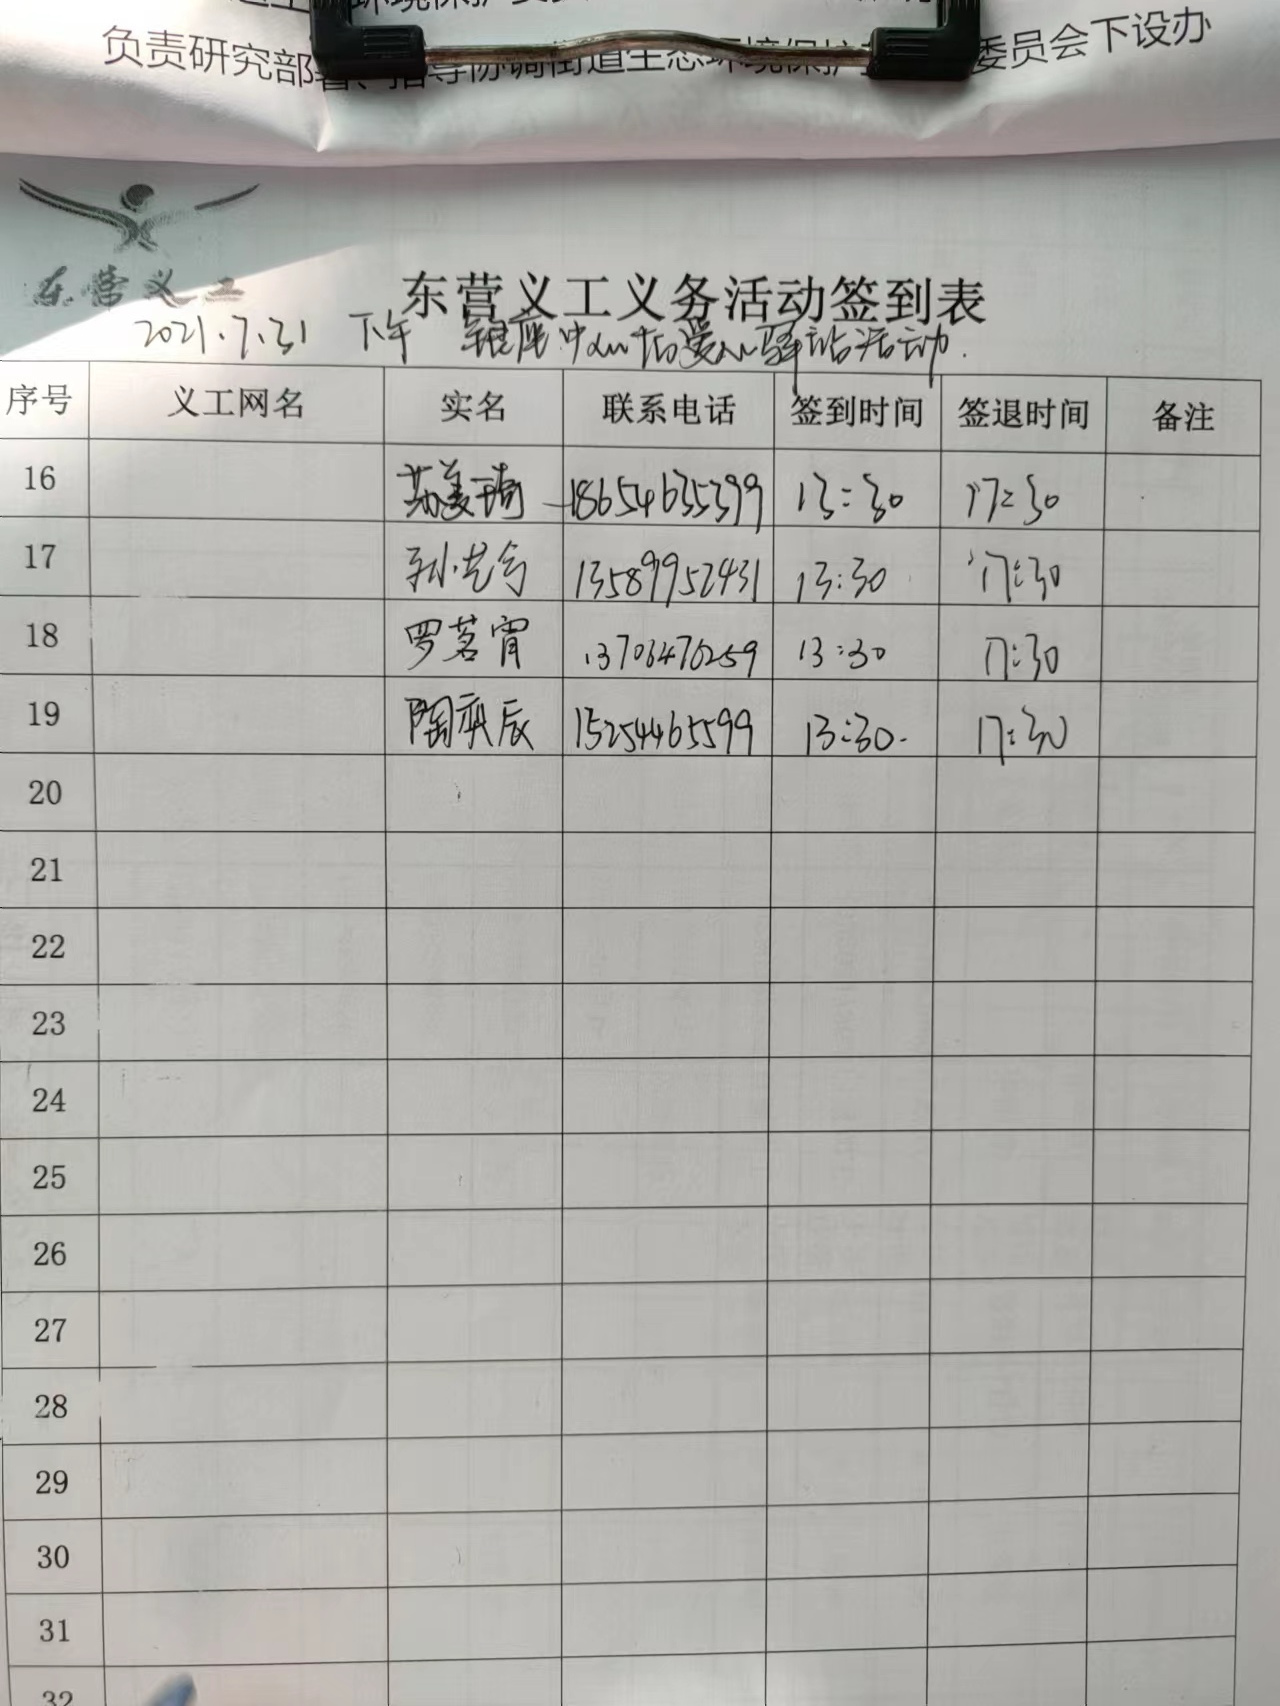 负责研究部署、指导协调街道生态环境保护 委员会下设办
东营义工
东营义工义务活动签到表
2021.7.31 下午 银座中心店爱心驿站活动.
序号 义工网名 实名 联系电话 签到时间 签退时间 备注
16 苏美琦 18654635399 13:30 17:30
17 孙艺 13589952431 13:30 17:30
18 罗茗宵 13706476259 13:30 17:30
19 陶奕辰 15254465599 13:30. 17:30
20
21
22
23
24
25
26
27
28
29
30
31
32